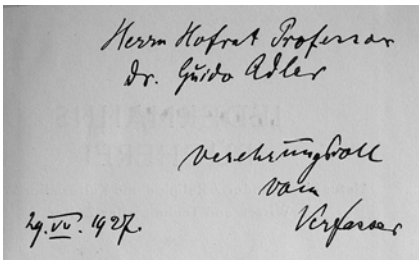 Herrn Hofrat Professor
Dr. Guido Adler
verehrungsvoll
vom
Verfasser
29. 1927.